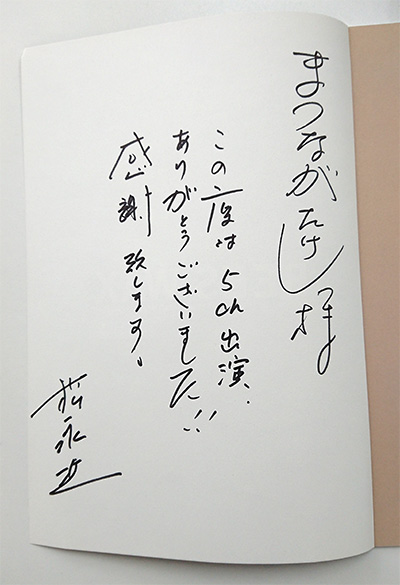 まつながたけし様
この度は5ch出演
ありがとうございました!!
感謝致します。